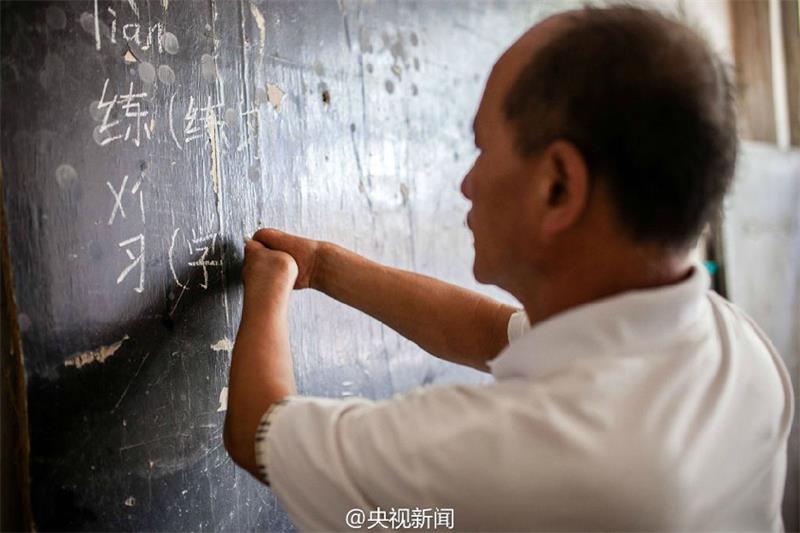 lian
练(练
xi
习(学
@央视新闻